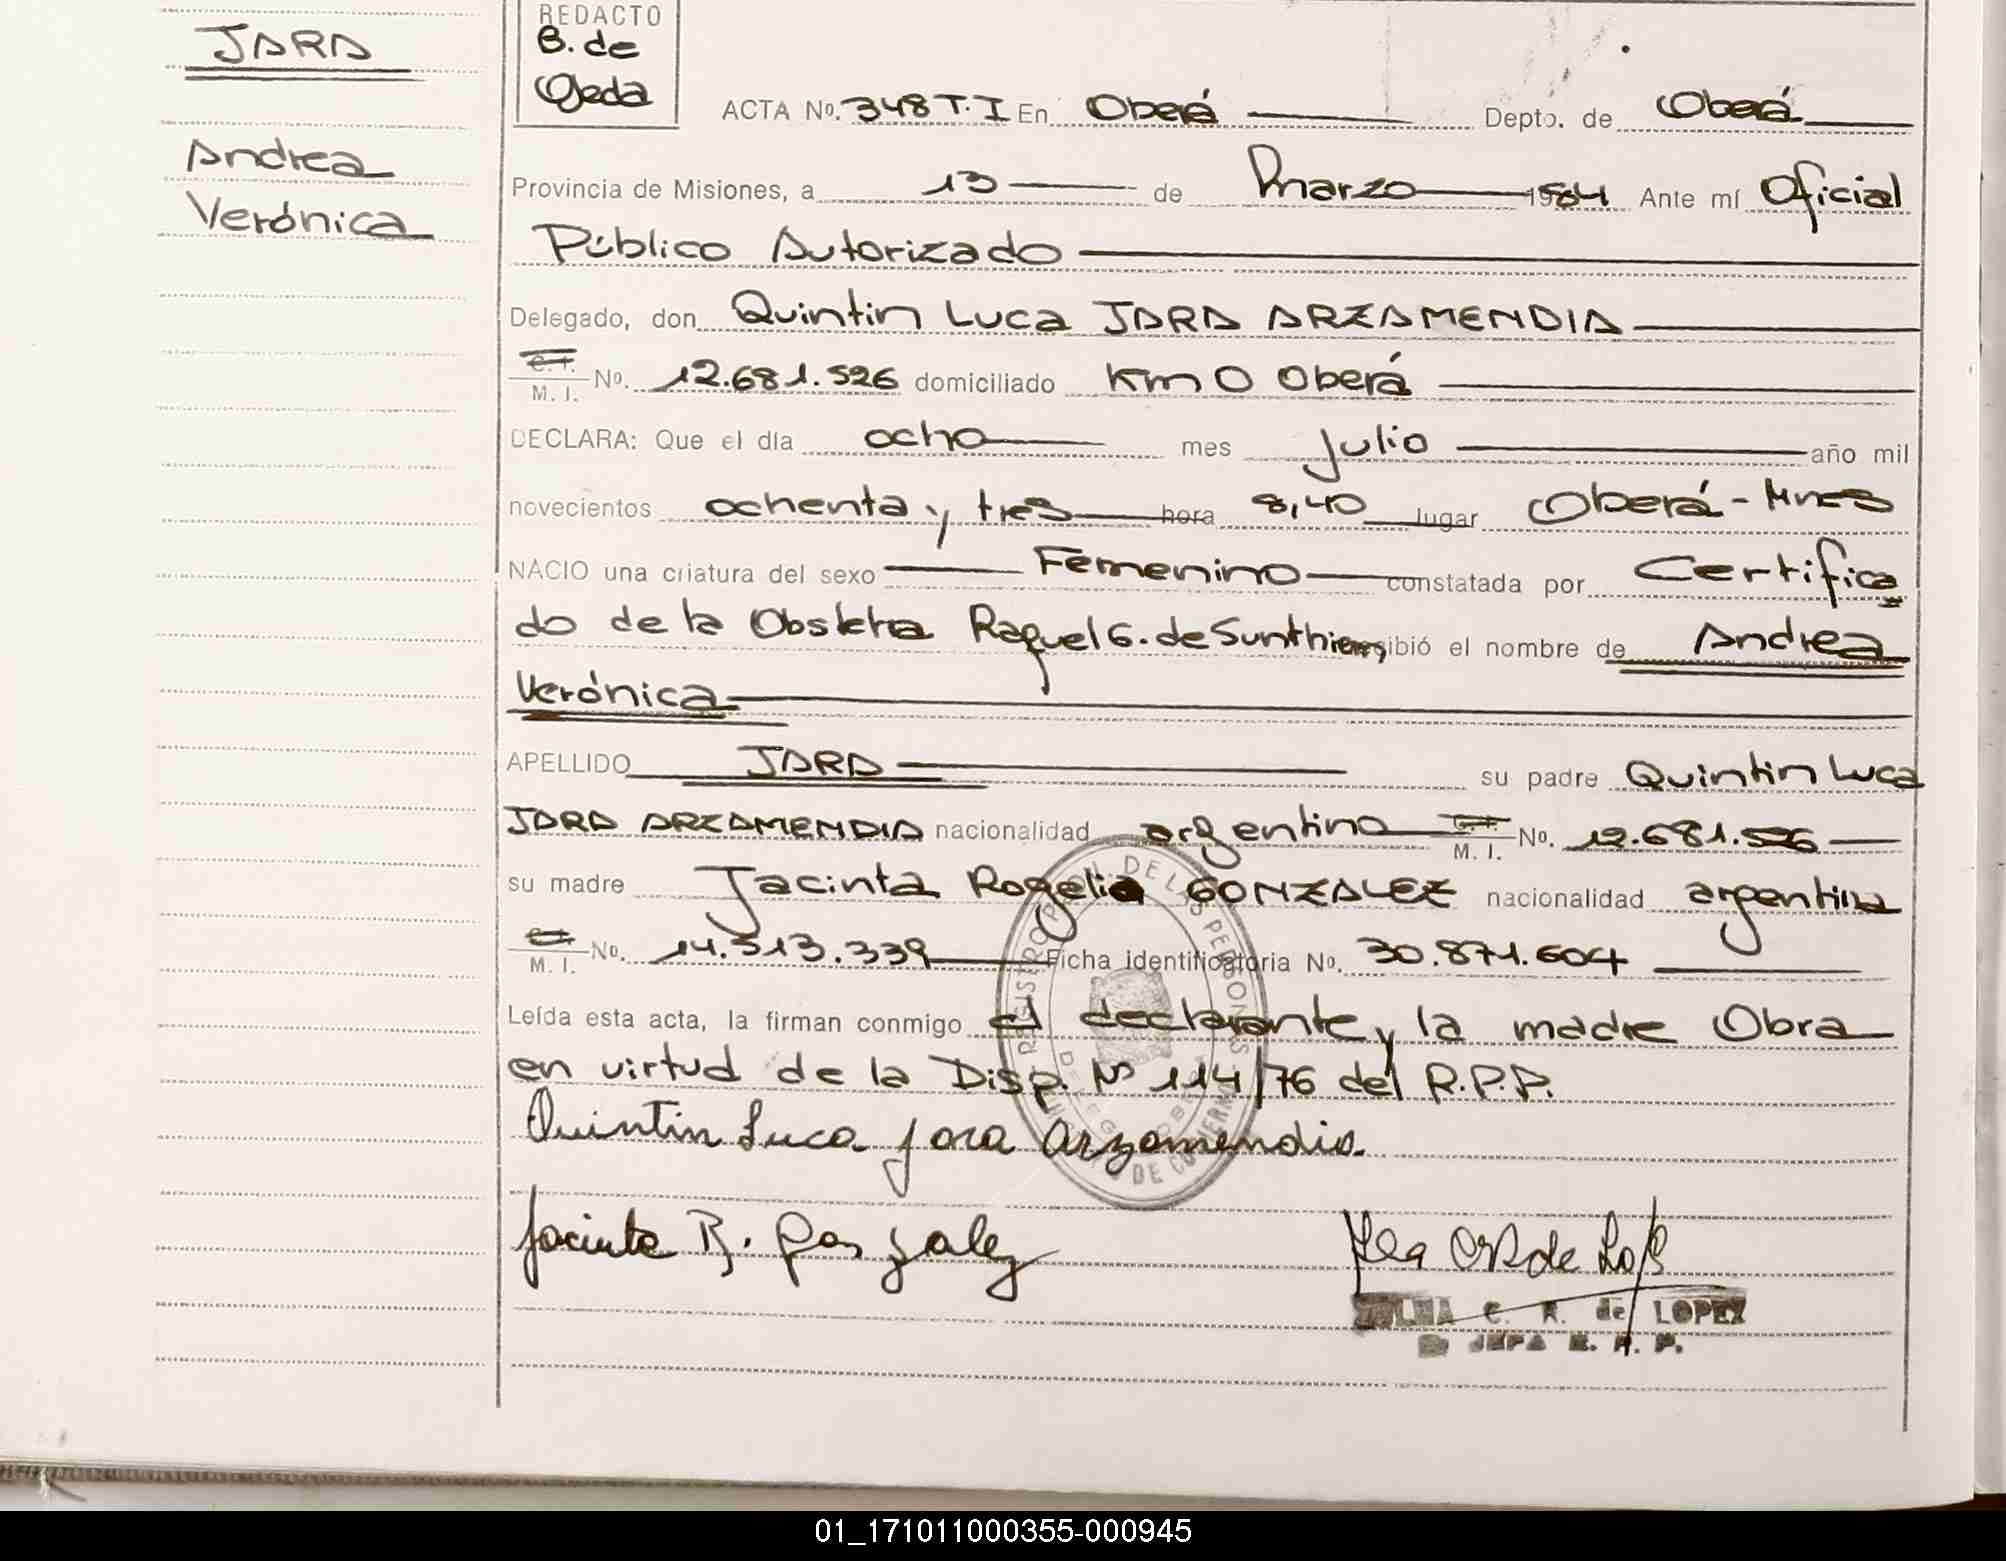 JARA
Andrea
Verónica
REDACTO
B. de
Ojeda
ACTA Nº. 348 T. I En Oberá Depto. de Oberá
Provincia de Misiones, a 13 de Marzo 1984 Ante mí Oficial
Público Autorizado
Delegado, don Quintin Luca JARA ARZAMENDIA
C. I.
M. I. Nº. 12.681.526 domiciliado Km 0 Oberá
DECLARA: Que el día ocho mes Julio año mil
novecientos ochenta y tres hora 8,40 lugar Oberá - Mnes
NACIO una criatura del sexo Femenino constatada por Certifica
do de la Obstetra Raquel G. de Sunthiem, recibió el nombre de Andrea
Verónica
APELLIDO JARA su padre Quintin Luca
JARA ARZAMENDIA nacionalidad argentino C. I. M. I. Nº. 12.681.526
su madre Jacinta Rogelia GONZALEZ nacionalidad argentina
C. I.
M. I. Nº. 14.513.339 Ficha identificatoria Nº. 30.871.604
Leída esta acta, la firman conmigo el declarante y la madre Obra
en virtud de la Disp. Nº 114/76 del R.P.P.
Quintin Luca Jara Arzamendia.
Jacinta R. Gonzalez
C. R. de LOPEZ
JEFA R. P. P.
REGISTRO DE LAS PERSONAS
01_171011000355-000945